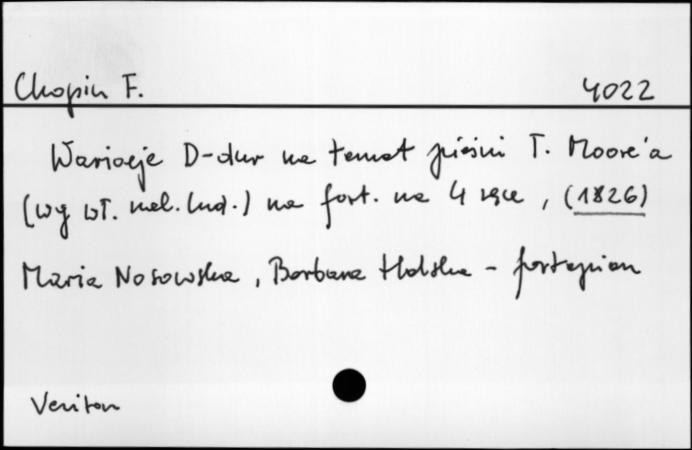 Chopin F. 4022
Wariacje D-dur na temat pieśni T. Moore'a
(wg wł. mel. lud.) na fort. na 4 ręce, (1826)
Maria Nosowska, Barbara Halska - fortepian
Veriton